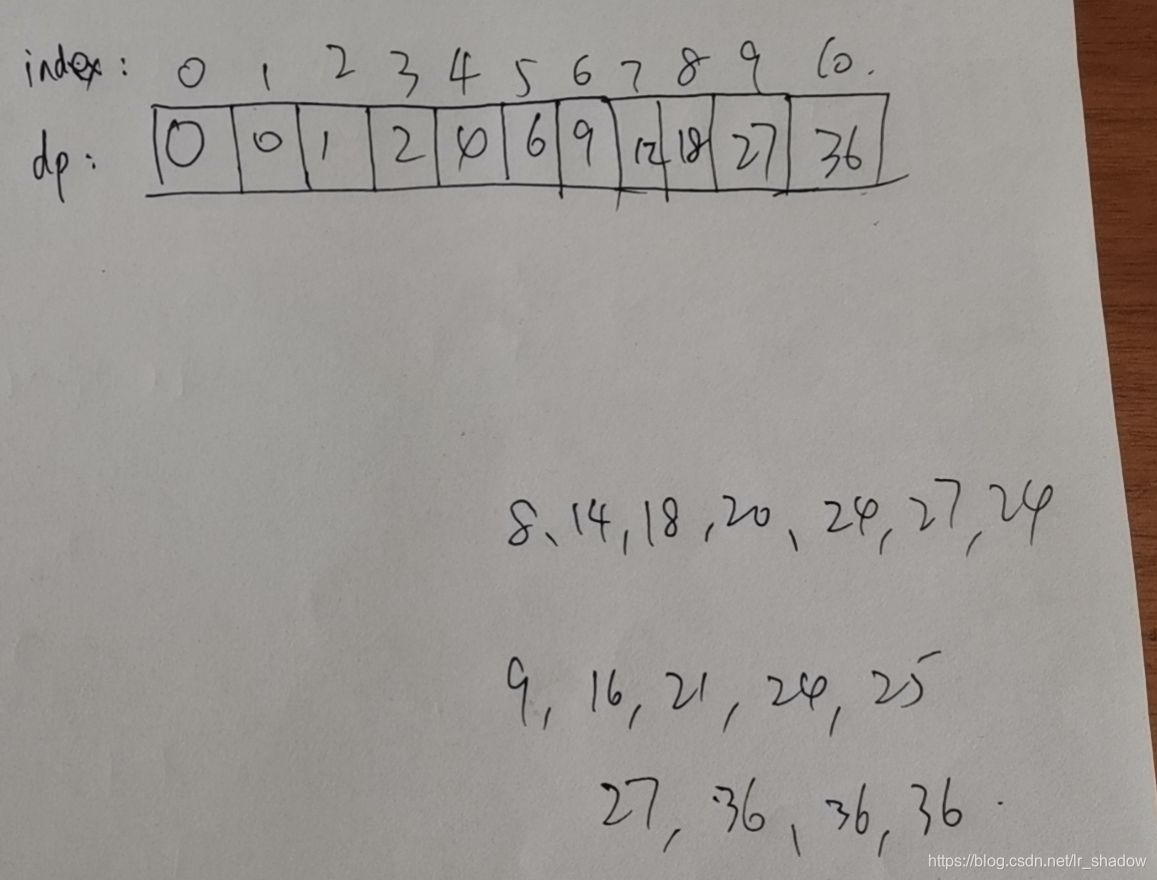 index: 0 1 2 3 4 5 6 7 8 9 10.
dp: 0 0 1 2 4 6 9 12 18 27 36
8、14,18,20、24,27,24
9,16,21,24,25
27,36、36,36.
https://blog.csdn.net/lr_shadow